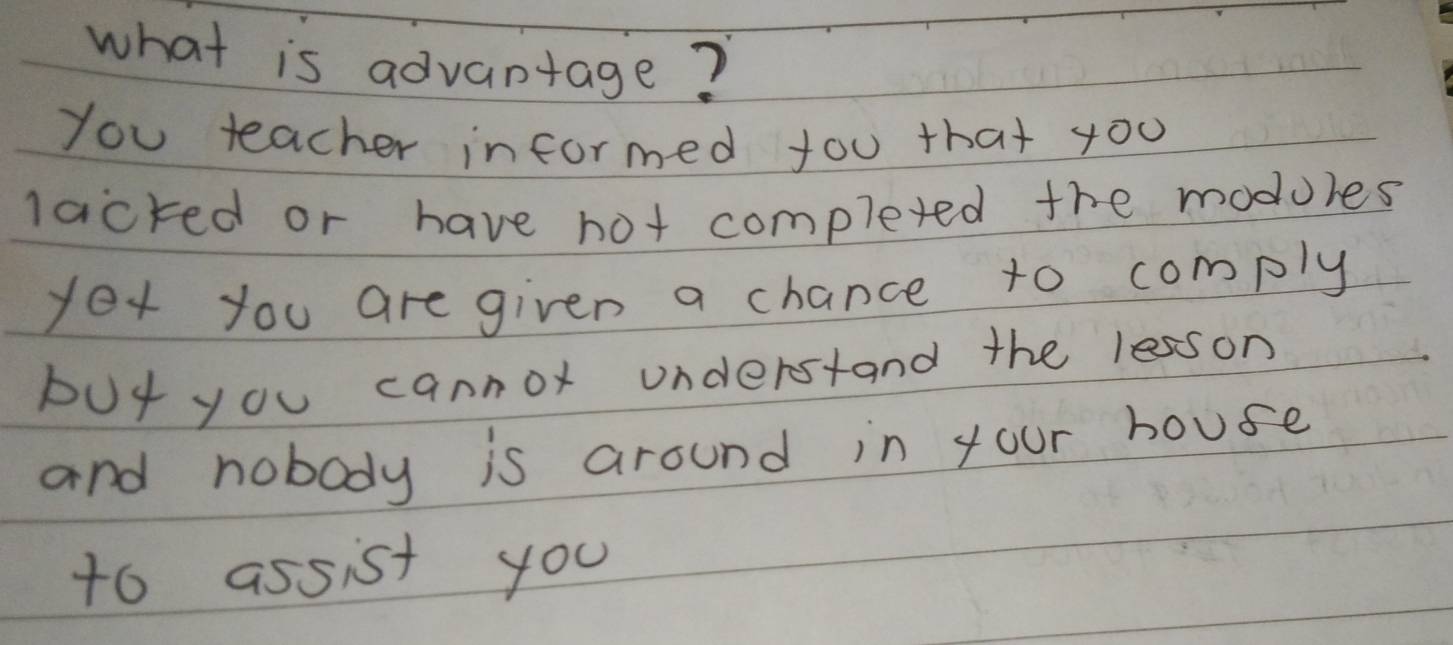 what is advantage?
You teacher informed you that you
lacked or have not completed the modules
yet you are given a chance to comply
but you cannot understand the lesson.
and nobody is around in your house
to assist you